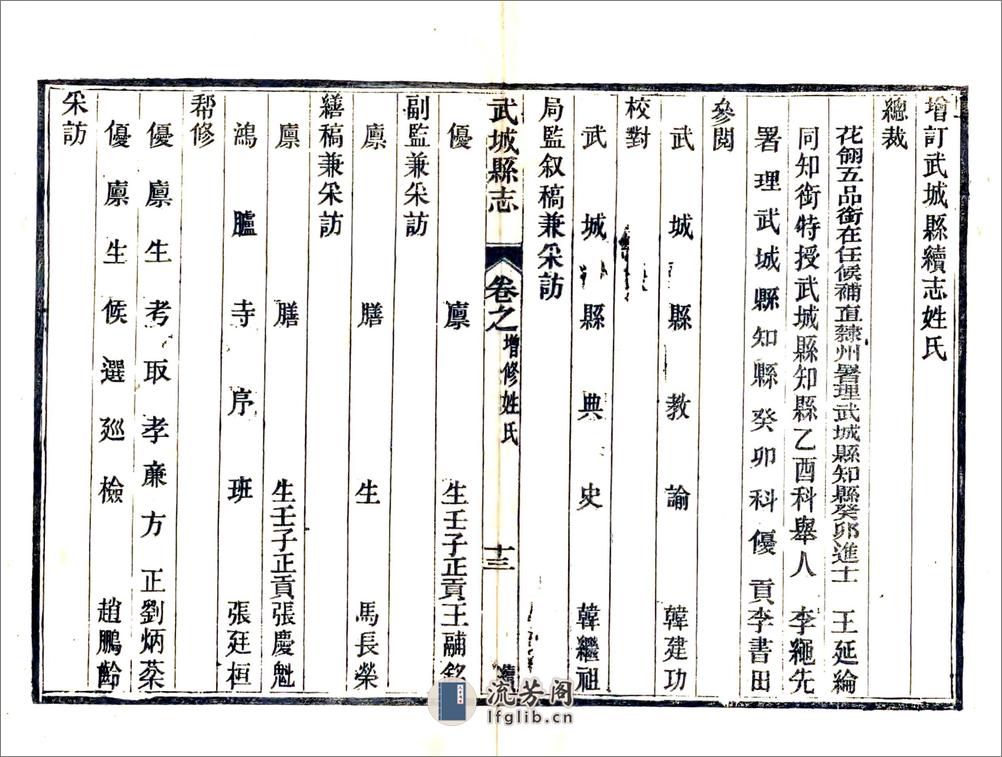 增訂武城縣續志姓氏
總裁
花翎五品銜在任候補直隸州署理武城縣知縣癸卯進士 王延綸
同知銜特授武城縣知縣乙酉科舉人 李繩先
署理武城縣知縣癸卯科優貢李書田
參閱
武城縣教諭 韓建功
校對
武城縣典史 韓繼祖
局監叙稿兼采訪
武城縣志 卷之 增修姓氏 十三 續
優廪生壬子正貢王黼銘
副監兼采訪
廪膳生 馬長榮
繕稿兼采訪
廪膳生壬子正貢張慶魁
鴻臚寺序班 張廷桓
幫修
優廪生考取孝廉方正劉炳棻
優廪生候選廵檢 趙鵬齡
采訪
流芳阁
lfglib.cn